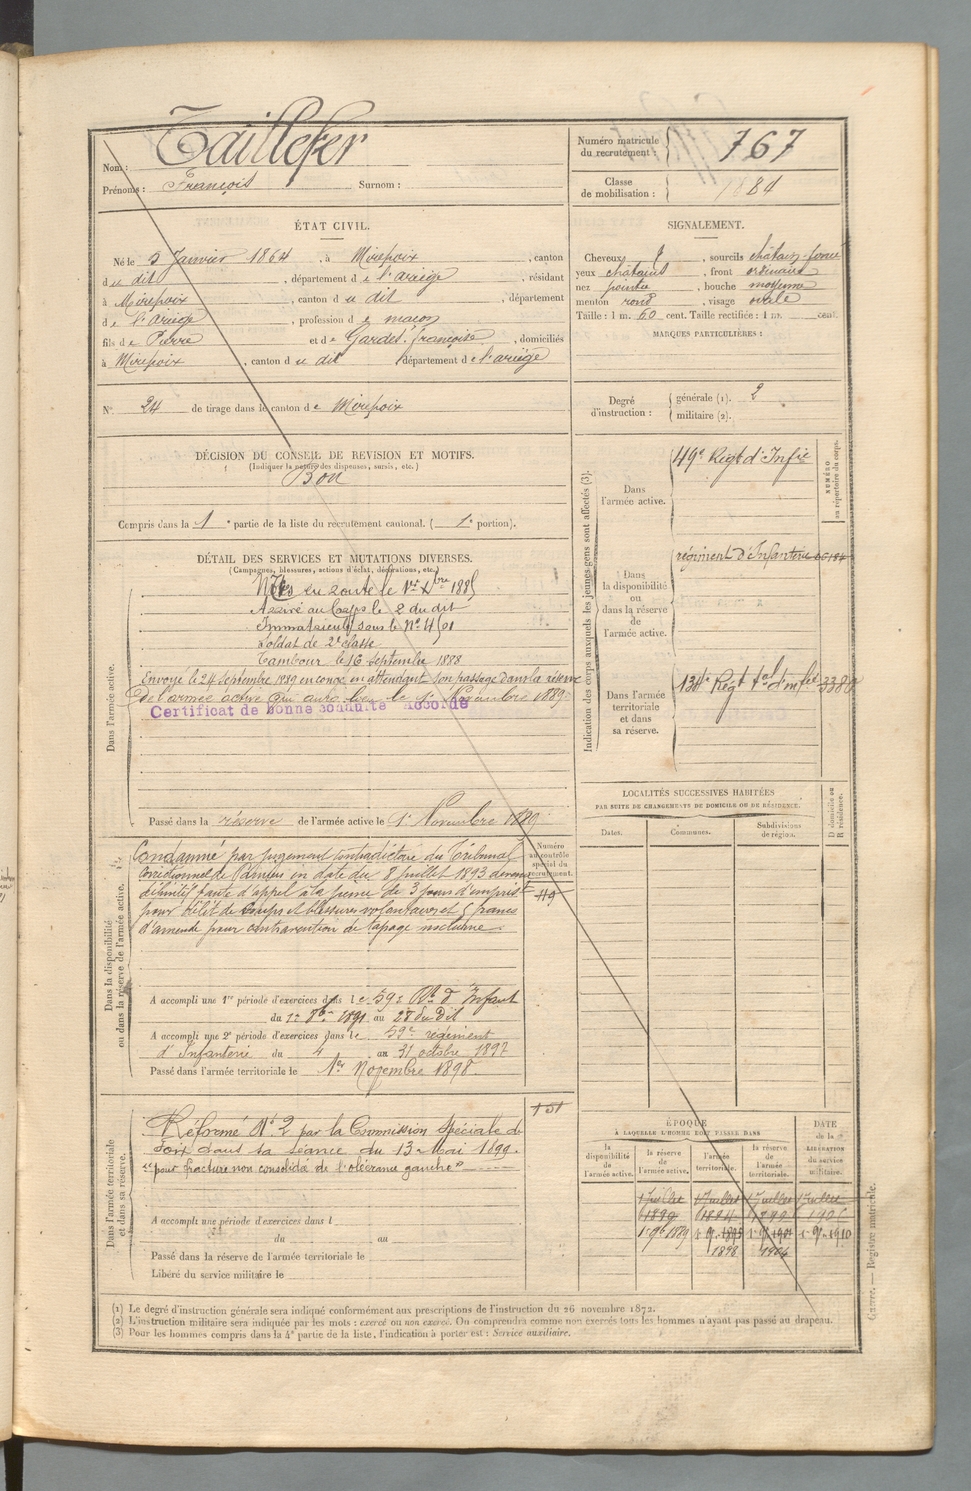 Nom : Taillefer
Prénoms : François Surnom :
Numéro matricule du recrutement : 767
Classe de mobilisation : 1884
ÉTAT CIVIL.
Né le 3 Janvier 1864, à Mirepoix, canton
du dit, département de l'ariège, résidant
à Mirepoix, canton du dit, département
de l'ariège, profession de maçon
fils de Pierre et de Gardel françoise, domiciliés
à Mirepoix, canton du dit département de l'ariège
N° 24 de tirage dans le canton de Mirepoix
SIGNALEMENT.
Cheveux, sourcils châtain-foncé
yeux châtains, front ordinaire
nez pointu, bouche moyenne
menton rond, visage ovale
Taille : 1 m. 60 cent. Taille rectifiée : 1 m. cent.
MARQUES PARTICULIÈRES :
Degré d'instruction : générale (1). 2
militaire (2).
DÉCISION DU CONSEIL DE REVISION ET MOTIFS.
(Indiquer la nature des dispenses, sursis, etc.)
Bon
Compris dans la 1e partie de la liste du recrutement cantonal. (1e portion).
DÉTAIL DES SERVICES ET MUTATIONS DIVERSES.
(Campagnes, blessures, actions d'éclat, décorations, etc.)
Dans l'armée active.
en route le 1er Xbre 1885
Arrivé au Corps le 2 du dit
Immatriculé sous le N° 4501
Soldat de 2e classe
Tambour le 16 septembre 1888
Envoyé le 24 Septembre 1889 en congé en attendant son passage dans la réserve
de l'armée active qui aura lieu le 1er Novembre 1889
Certificat de bonne conduite Accordé
Passé dans la réserve de l'armée active le 1er Novembre 1889
Indication des corps auxquels les jeunes gens sont affectés (3).
NUMÉRO au répertoire du corps.
Dans l'armée active.
49e Régt d'Infie
Dans la disponibilité ou dans la réserve de l'armée active.
régiment d'Infanterie
Dans l'armée territoriale et dans sa réserve.
134e Régt tal d'Infie 3380
Dans la disponibilité ou dans la réserve de l'armée active.
Numéro au contrôle spécial du recrutement.
119
Condamné par jugement contradictoire du Tribunal
Correctionnel de Pamiers en date du 8 juillet 1893 devenu
définitif faute d'appel à la peine de 3 jours d'emprist
pour délit de coups et blessures volontaires et 5 francs
d'amende pour contravention de tapage nocturne.
A accompli une 1re période d'exercices dans le 59e Rt d'Infant
du 1er 8bre 1891 au 28 du dit
A accompli une 2e période d'exercices dans le 59e régiment
d'Infanterie du 4 au 31 octobre 1897
Passé dans l'armée territoriale le 1er Novembre 1898
Dans l'armée territoriale et dans sa réserve.
151
Réformé N° 2 par la Commission spéciale de
Foix dans sa séance du 13 Mai 1899.
"pour fracture non consolidée de l'olécrane gauche"
A accompli une période d'exercices dans l
du au
Passé dans la réserve de l'armée territoriale le
Libéré du service militaire le
LOCALITÉS SUCCESSIVES HABITÉES
PAR SUITE DE CHANGEMENTS DE DOMICILE OU DE RÉSIDENCE.
Dates. Communes. Subdivisions de région. D domicile ou R résidence.
ÉPOQUE
À LAQUELLE L'HOMME DOIT PASSER DANS
DATE de la LIBÉRATION du service militaire.
la disponibilité de l'armée active. la réserve de l'armée active. l'armée territoriale. la réserve de l'armée territoriale.
1 Juillet 1 Juillet 1 Juillet 1 Juillet
1er 9bre 1889
1898 1904
(1) Le degré d'instruction générale sera indiqué conformément aux prescriptions de l'instruction du 26 novembre 1872.
(2) L'instruction militaire sera indiquée par les mots : exercé ou non exercé. On comprendra comme non exercés tous les hommes n'ayant pas passé au drapeau.
(3) Pour les hommes compris dans la 4e partie de la liste, l'indication à porter est : Service auxiliaire.
Guerre. — Registre matricule.